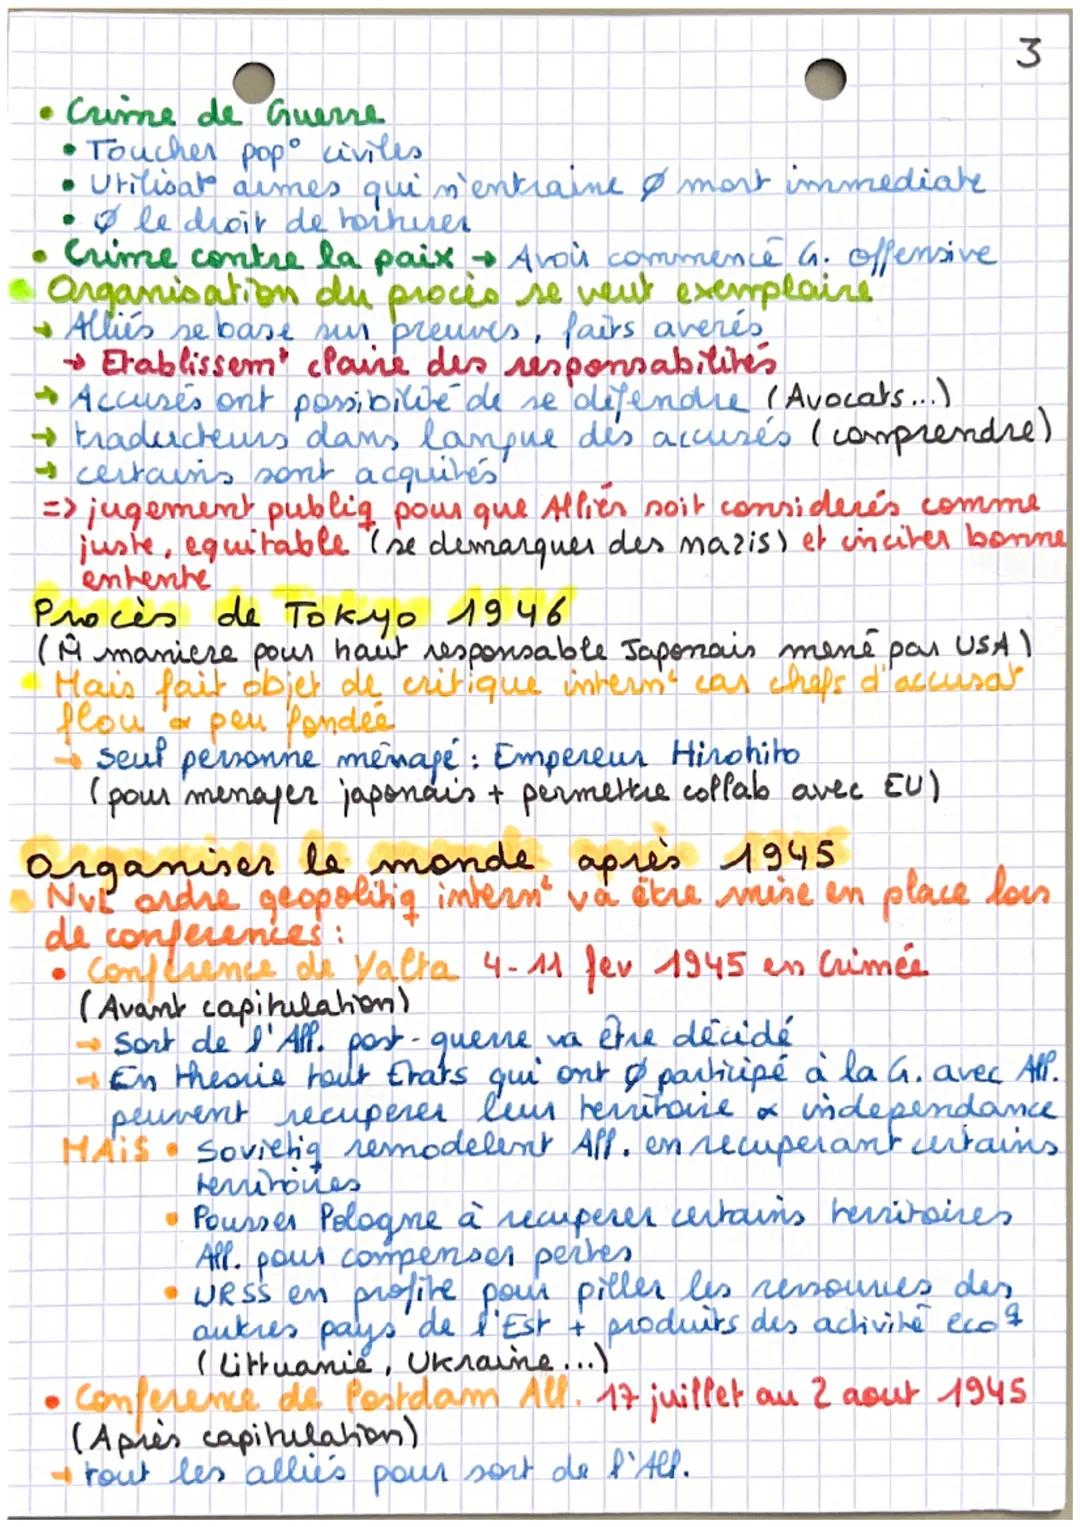 3
• Crime de Guerre
• Toucher pop° civiles
• Utilisat° armes qui n'entraine Ø mort immediate
• Ø le droit de torturer
• Crime contre la paix → Avoir commencé G. offensive
Organisation du procès se veut exemplaire
→ Alliés se base sur preuves, faits averés
→ Etablissemt claire des responsabilités
→ Accusés ont possibilité de se défendre (Avocats...)
→ traducteurs dans langue des accusés (comprendre)
→ certains sont acquités
=> jugement publiq pour que Alliés soit considerés comme
juste, equitable (se demarquer des nazis) et inciter bonne
entente
Procès de Tokyo 1946
(M̂ maniere pour haut responsable Japonais mené par USA)
• Mais fait objet de critique internt car chefs d'accusat°
flou & peu fondée
→ seul personne ménagé : Empereur Hirohito
(pour menager japonais + permettre collab avec EU)
Organiser le monde après 1945
• Nvt ordre geopolitiq internt va être mise en place lors
de conferences :
• Conférence de Yalta 4-11 fev 1945 en Crimée
(Avant capitulation)
→ Sort de l'All. post-guerre va être décidé
→ En theorie tout Etats qui ont Ø participé à la G. avec All.
peuvent recuperer leur territoire & independance
MAiS • Sovietiq remodelent All. en recuperant certains
territoires
• Pousser Pologne à recuperer certains territoires
All. pour compenser pertes
• URSS en profite pour piller les ressources des
autres pays de l'Est + produits des activité ecoq
(Littuanie, Ukraine...)
• Conference de Postdam All. 17 juillet au 2 aout 1945
(Après capitulation)
→ tout les alliés pour sort de l'All.